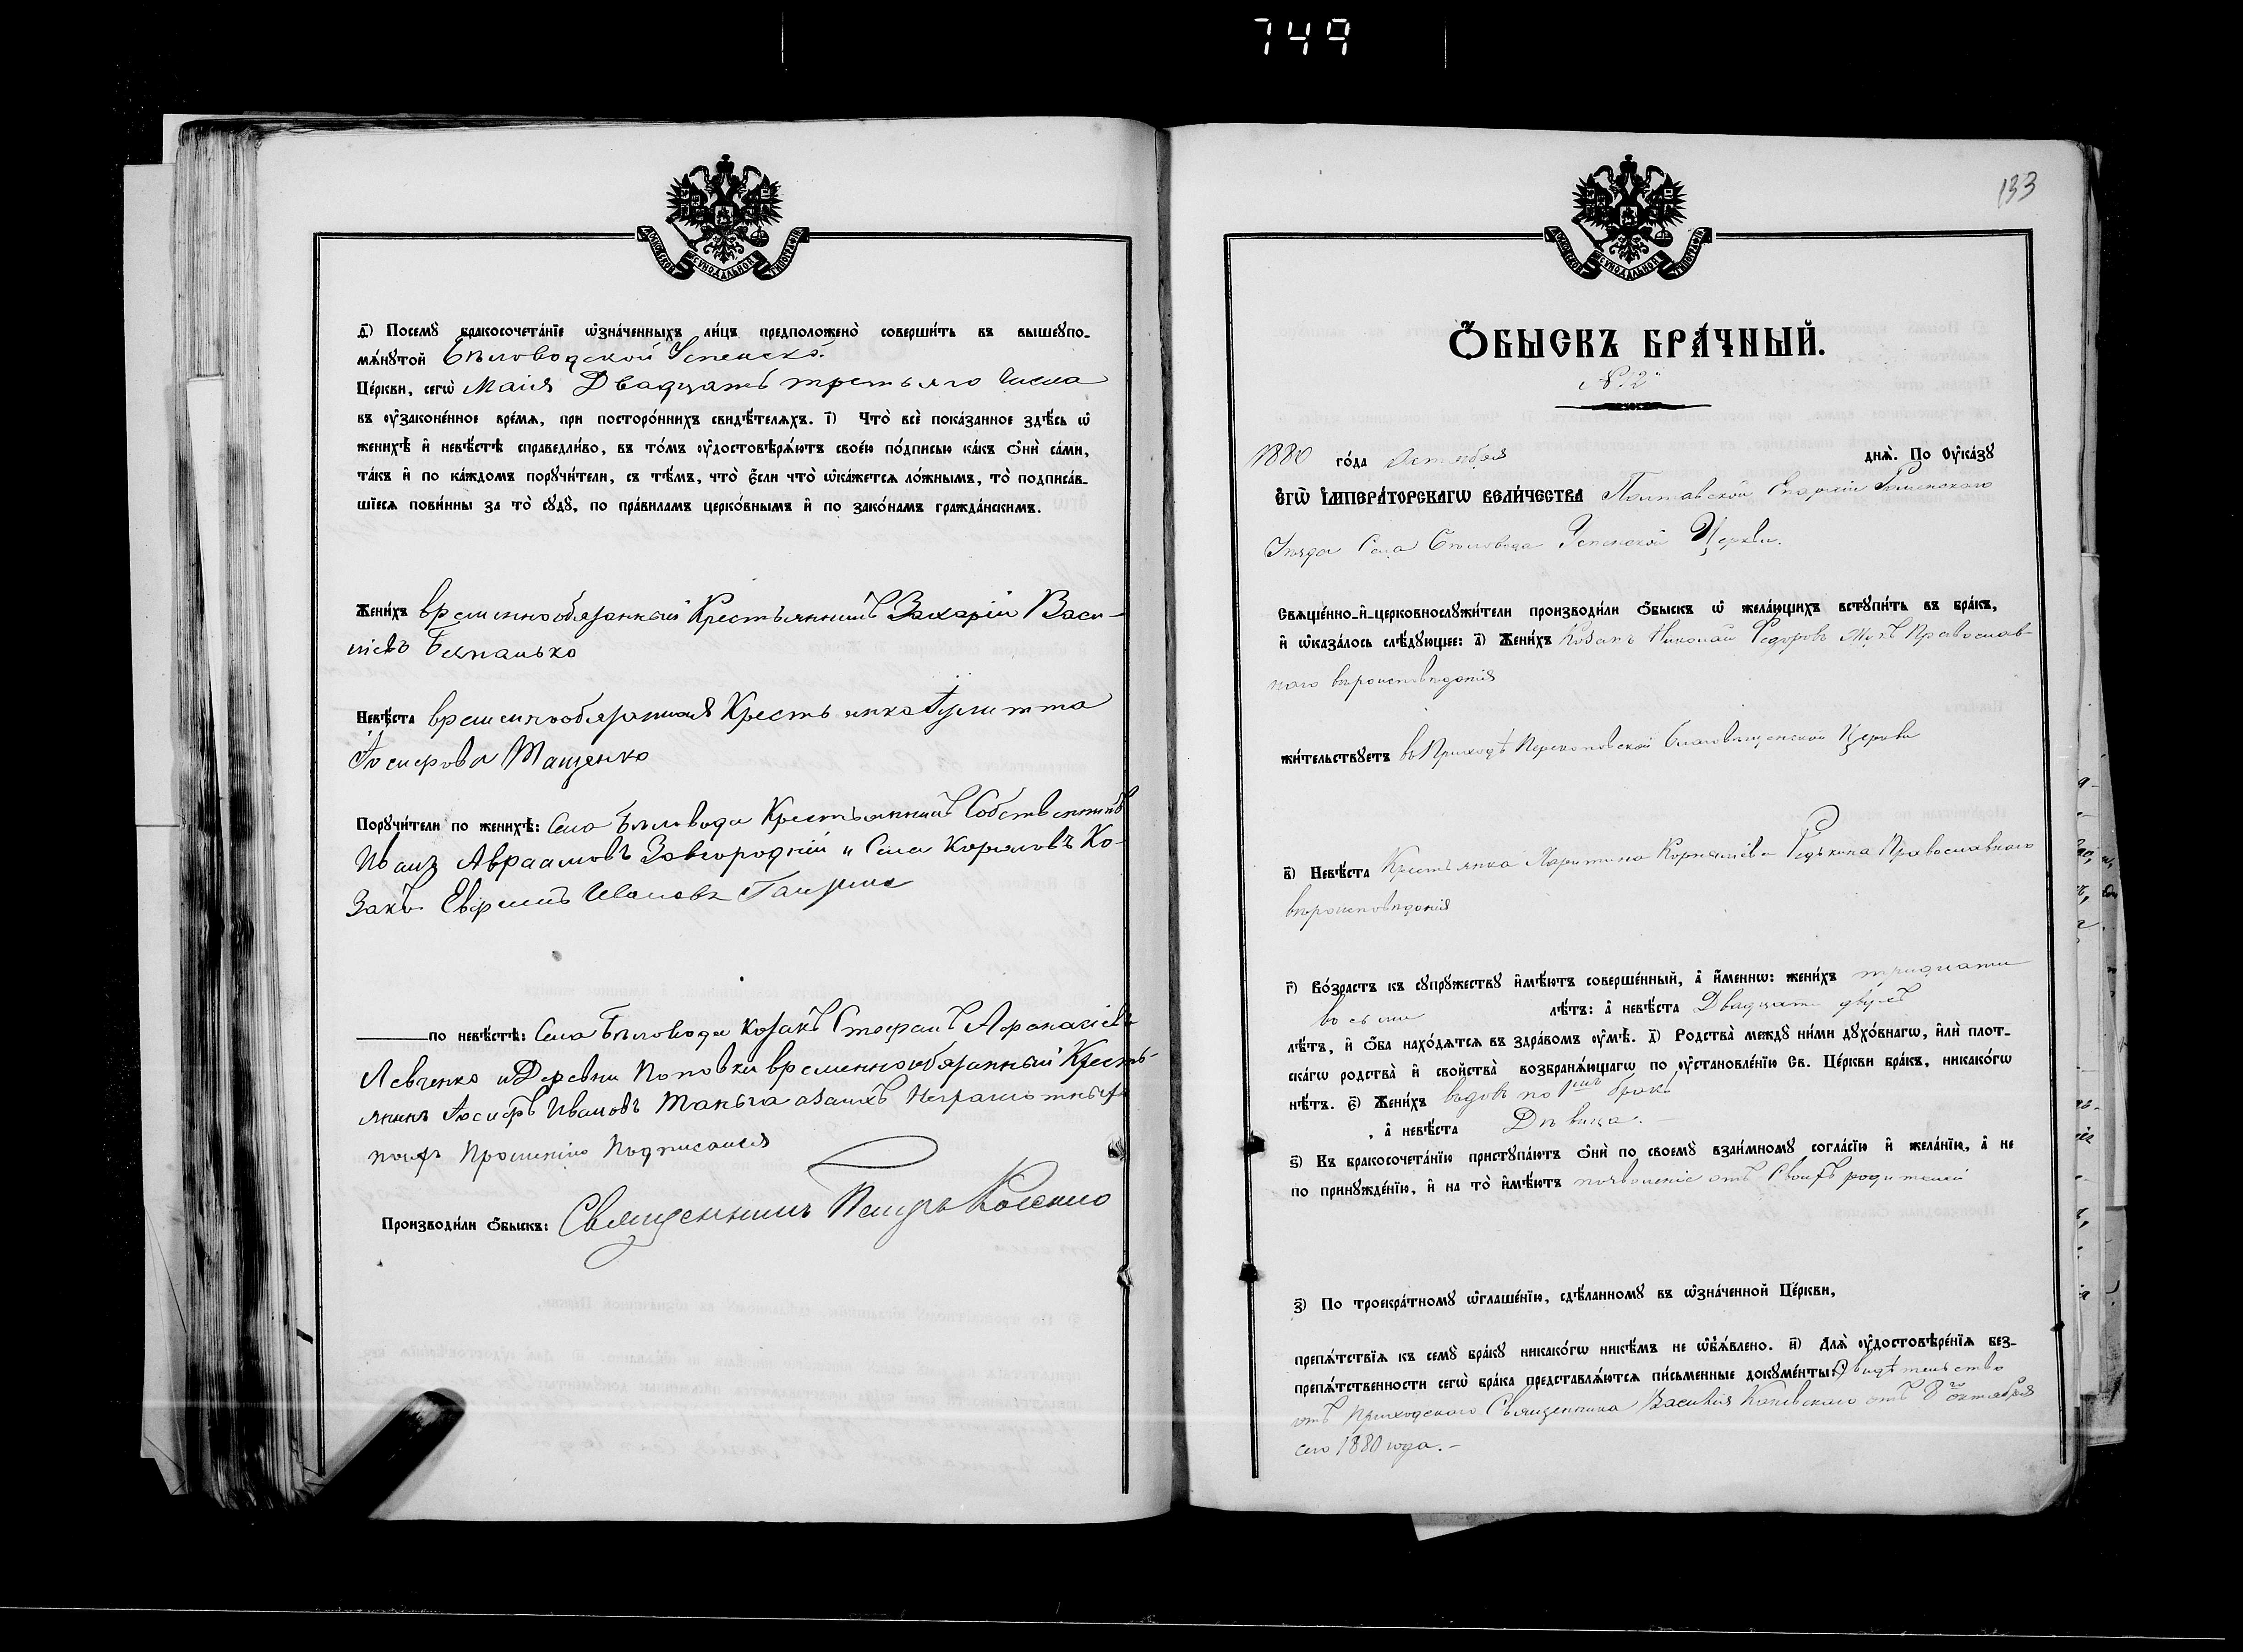 749
МОСКОВСКОЙ СѴНОДАЛЬНОЙ ТИПОГРАФІИ
д҃) Посемꙋ бракосочета́нїе ѡ҆зна́ченныхъ ли́цъ предположено̀ соверши́ть въ вышеꙋпо-
мѧ́нꙋтой Бѣловодской Успенской
Це́ркви, сегѡ̀ Маія Двадцать третьяго числа
въ ᲂу҆законе́нное вре́мѧ, при посторо́ннихъ свидѣ́телѧхъ. і҃) Что̀ всѐ пока́занное здѣ́сь ѡ҆
женихѣ̀ и҆ невѣ́стѣ справедли́во, въ то́мъ ᲂу҆достовѣрѧ́ютъ свое́ю по́дписью ка́къ ѻ҆нѝ са́ми,
та́къ и҆ по ка́ждомъ порꙋчи́тели, съ тѣ́мъ, что̀ є҆́сли что̀ ѡ҆ка́жетсѧ ло́жнымъ, то̀ подписа́в-
шїесѧ пови́нны за то̀ сꙋдꙋ̀, по пра́виламъ церко́внымъ и҆ по зако́намъ гражда́нскимъ.
Жени́хъ временнообязанный Крестьянинъ Захарій Васи-
ліевъ
Невѣ́ста временнообязанная Крестьянка Іулитта
Іосифова Тащенко
Порꙋчи́тели по женихѣ̀: Села Бѣловода Крестьянинъ Собственникъ
Иванъ Авраамовъ Завгородній и Села Коржовъ Ко-
закъ Ефремъ Ивановъ
по невѣ́стѣ: Села Бѣловода Козакъ Стефанъ Афанасіевъ
Левченко и Деревни Поповки временнообязанный Кресть-
янинъ Іосифъ Ивановъ а за нихъ Неграмотныхъ
по ихъ Прошенію Подписался
Производи́ли ѻ҆́быскъ: Священникъ Петръ
133
МОСКОВСКОЙ СѴНОДАЛЬНОЙ ТИПОГРАФІИ
Ѻ҆́БЫСКЪ БРА́ЧНЫЙ.
№ 12
1880 го́да Октября днѧ̀. По Оу҆ка́зꙋ
Є҆ГѠ̀ І҆МПЕРА́ТОРСКАГѠ ВЕЛИ́ЧЕСТВА Полтавской Епархіи Роменского
Уѣзда Села Бѣловода Успенской Церкви.
Свѧще́нно-и҆-церковнослꙋжи́тели производи́ли ѻ҆́быскъ ѡ҆ жела́ющихъ встꙋпи́ть въ бра́къ,
и҆ ѡ҆каза́лось слѣ́дꙋющее: а҃) Жени́хъ Козакъ Николай Федоровъ Православ-
ного вѣроисповѣданія
жи́тельствꙋетъ въ Приходѣ Перекоповской Благовѣщенской Церкви
в҃) Невѣ́ста Крестьянка Харитина Корниліева Редькина Православного
вѣроисповѣданія
г҃) Во́зрастъ къ сꙋпрꙋ́жествꙋ и҆мѣ́ютъ соверше́нный, а҆ и҆́меннѡ: жени́хъ тридцати
восьми лѣ́тъ: а҆ невѣ́ста Двадцати двухъ
лѣ́тъ, и҆ ѻ҆́ба нахо́дѧтсѧ въ здра́вомъ ᲂу҆мѣ̀. д҃) Родства̀ междꙋ̀ ни́ми дꙋхо́внагѡ, и҆лѝ плот-
ска́гѡ родства̀ и҆ сво́йства возбранѧ́ющагѡ по ᲂу҆становле́нїю Св. Це́ркви бра́къ, никако́гѡ
нѣ́тъ. є҃) Жени́хъ вдовъ по 1мъ бракѣ
, а҆ невѣ́ста Дѣвица.
ѕ҃) Въ бракосочета́нїю пристꙋпа́ютъ ѻ҆нѝ по своемꙋ̀ взаи́мномꙋ согла́сїю и҆ жела́нїю, а҆ не
по принꙋжде́нїю, и҆ на то̀ и҆мѣ́ютъ позволеніе отъ Своихъ родителей
з҃) По троекра́тномꙋ ѡ҆глаше́нїю, сдѣ́ланномꙋ въ ѡ҆зна́ченной Це́ркви,
препѧ́тствїѧ къ семꙋ̀ бра́кꙋ никако́гѡ никѣ́мъ не ѡ҆б̾ѧ́влено. и҃) Длѧ̀ ᲂу҆достовѣре́нїѧ без-
препѧ́тственности сегѡ̀ бра́ка представлѧ́ютсѧ пи́сьменные докꙋме́нты: Свидѣтельство
отъ Приходского Священника Василія Каневского отъ 8го октября
сего 1880 года.